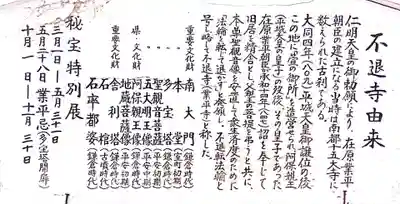 不退寺由来
仁明天皇の勅願により、在原業平
朝臣の建立になる当時は南都十五大寺に
数えられた古刹である。
大同四年(八〇九)平城天皇御譲位の後
この地に「萱の御所」を造営せられ阿保親王
(平城天皇の皇子)の没後、その皇子であった
在原業平朝臣承和十四年(八四七)詔を奉じて
旧居を精舎とし父親王の菩提を弔うと共に、
本尊聖観音像を安置して衆生済度のために
法輪を転じて退かずと発願し、不退転法輪と
号し略して不退寺(業平寺)と称した。
重要文化財 南大門 (鎌倉時代)
〃 本堂 (室町初期)
〃 多宝塔 (鎌倉時代)
〃 聖観音菩薩 (平安初期)
〃 五大明王像 (平安中期)
県・文化財 阿保親王像 (鎌倉時代)
地蔵菩薩像 (平安初期)
重要文化財 舎利塔 (鎌倉時代)
石棺 (古墳時代)
石率都婆 (鎌倉時代)
秘宝特別展
三月一日―五月三十一日
五月二十八日 業平忌(多宝塔開扉)
十月一日―十一月三十日